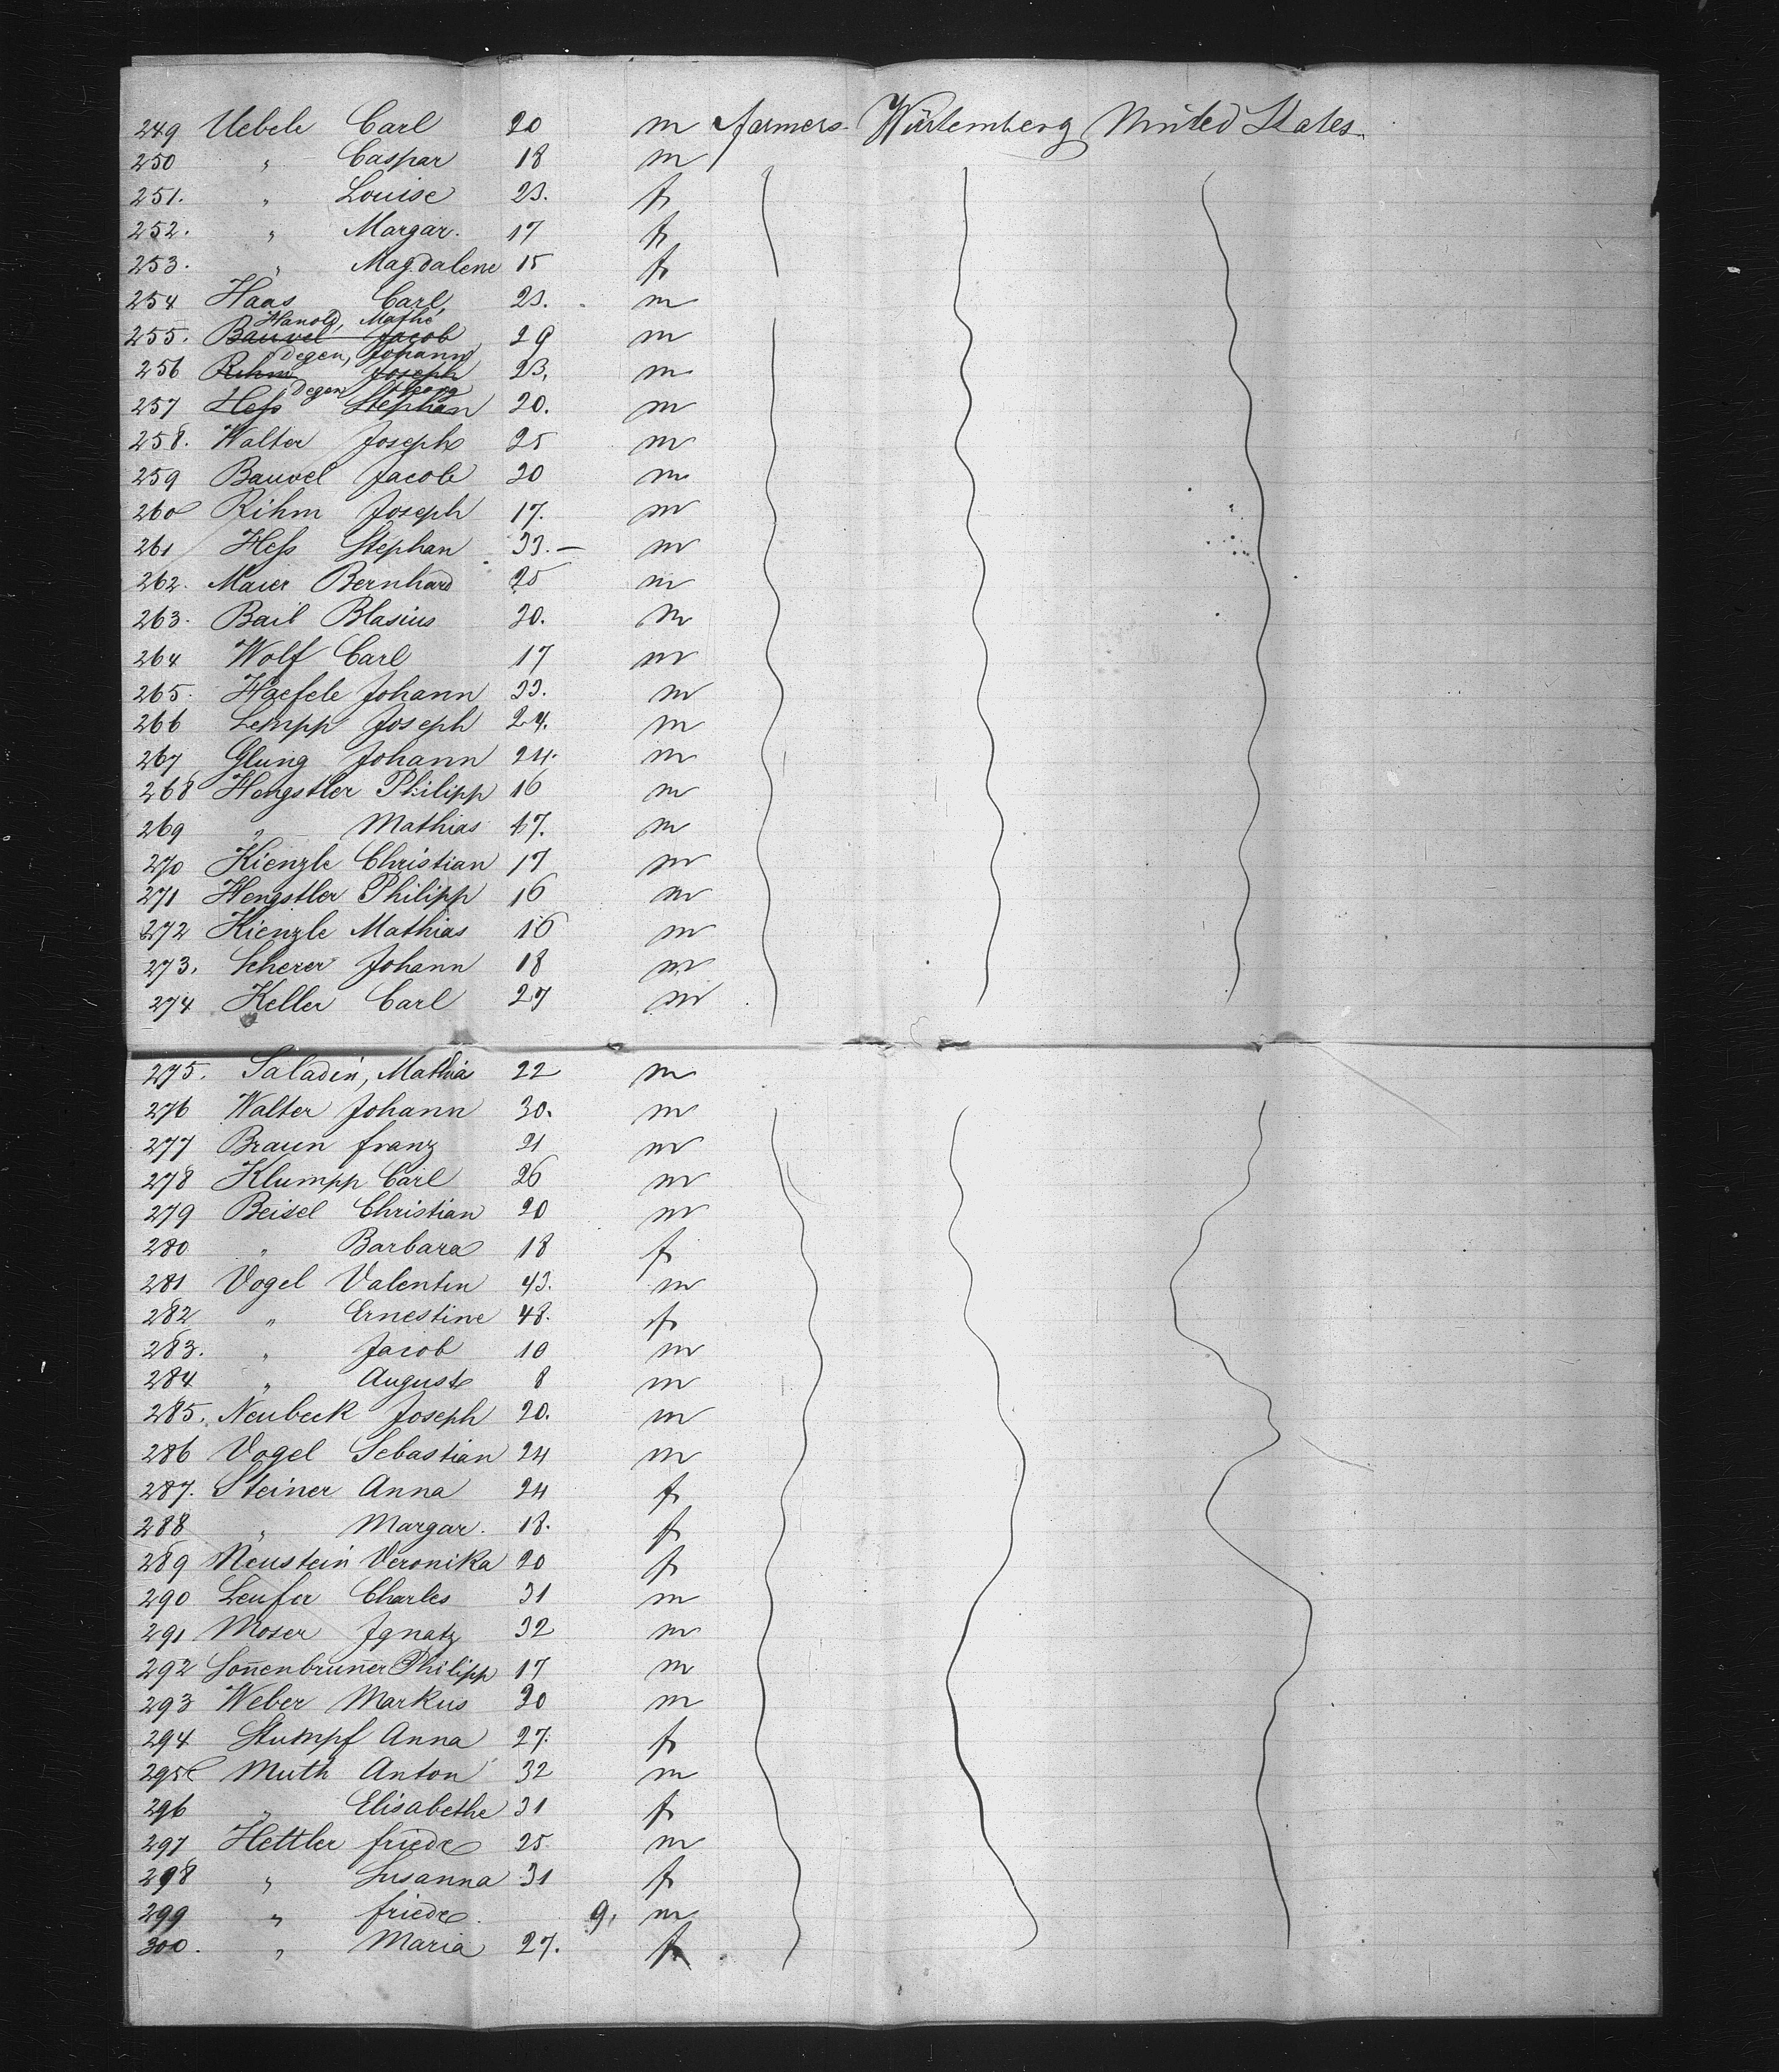 249 Uebele Carl 20 m farmers Würtemberg United States
250 " Caspar 18 m
251. " Louise 23. f
252. " Margar. 17 f
253. " Magdalene 15 f
254 Haas Carl 23. m
Hanold, Mathe
255. Bauvel Jacob 29 m
Degen, Johann
256 Rihm Joseph 23. m
Degen Georg
257 Heſs Stephan 20. m
258. Walter Joseph 25 m
259 Bauvel Jacob 20 m
260 Rihm Joseph 17. m
261 Heſs Stephan 33. — m
262. Maier Bernhard 25 m
263. Bail Blasius 20. m
264 Wolf Carl 17 m
265. Haefele Johann 33. m
266 Lempp Joseph 24. m
267 Glung Johann 24. m
268 Hengstler Philipp 16 m
269 " Mathias 17. m
270 Kienzle Christian 17 m
271 Hengstler Philipp 16 m
272 Kienzle Mathias 16 m
273. Scherer Johann 18 m
274 Keller Carl 27 m
275. Saladin, Mathia 22 m
276 Walter Johann 30. m
277 Braun franz 21 m
278 Klumpp Carl 26 m
279 Beisel Christian 20 m
280 " Barbara 18 f
281 Vogel Valentin 43. m
282 " Ernestine 48. f
283. " Jacob 10 m
284 " August 8 m
285. Neubeck Joseph 20. m
286 Vogel Sebastian 24 m
287. Steiner Anna 24 f
288 " Margar. 18. f
289 Neustein Veronika 20 f
290 Leufer Charles 31 m
291 Moser Jgnatz 32 m
292 Son̄enbrun̄er Philipp 17 m
293 Weber Markus 20 m
294 Stumpf Anna 27. f
295 Muth Anton 32 m
296 " Elisabethe 31 f
297 Hettler friedr 25. m
298 " Susanna 31 f
299 " friedr. 9. m
300. " Maria 27. f